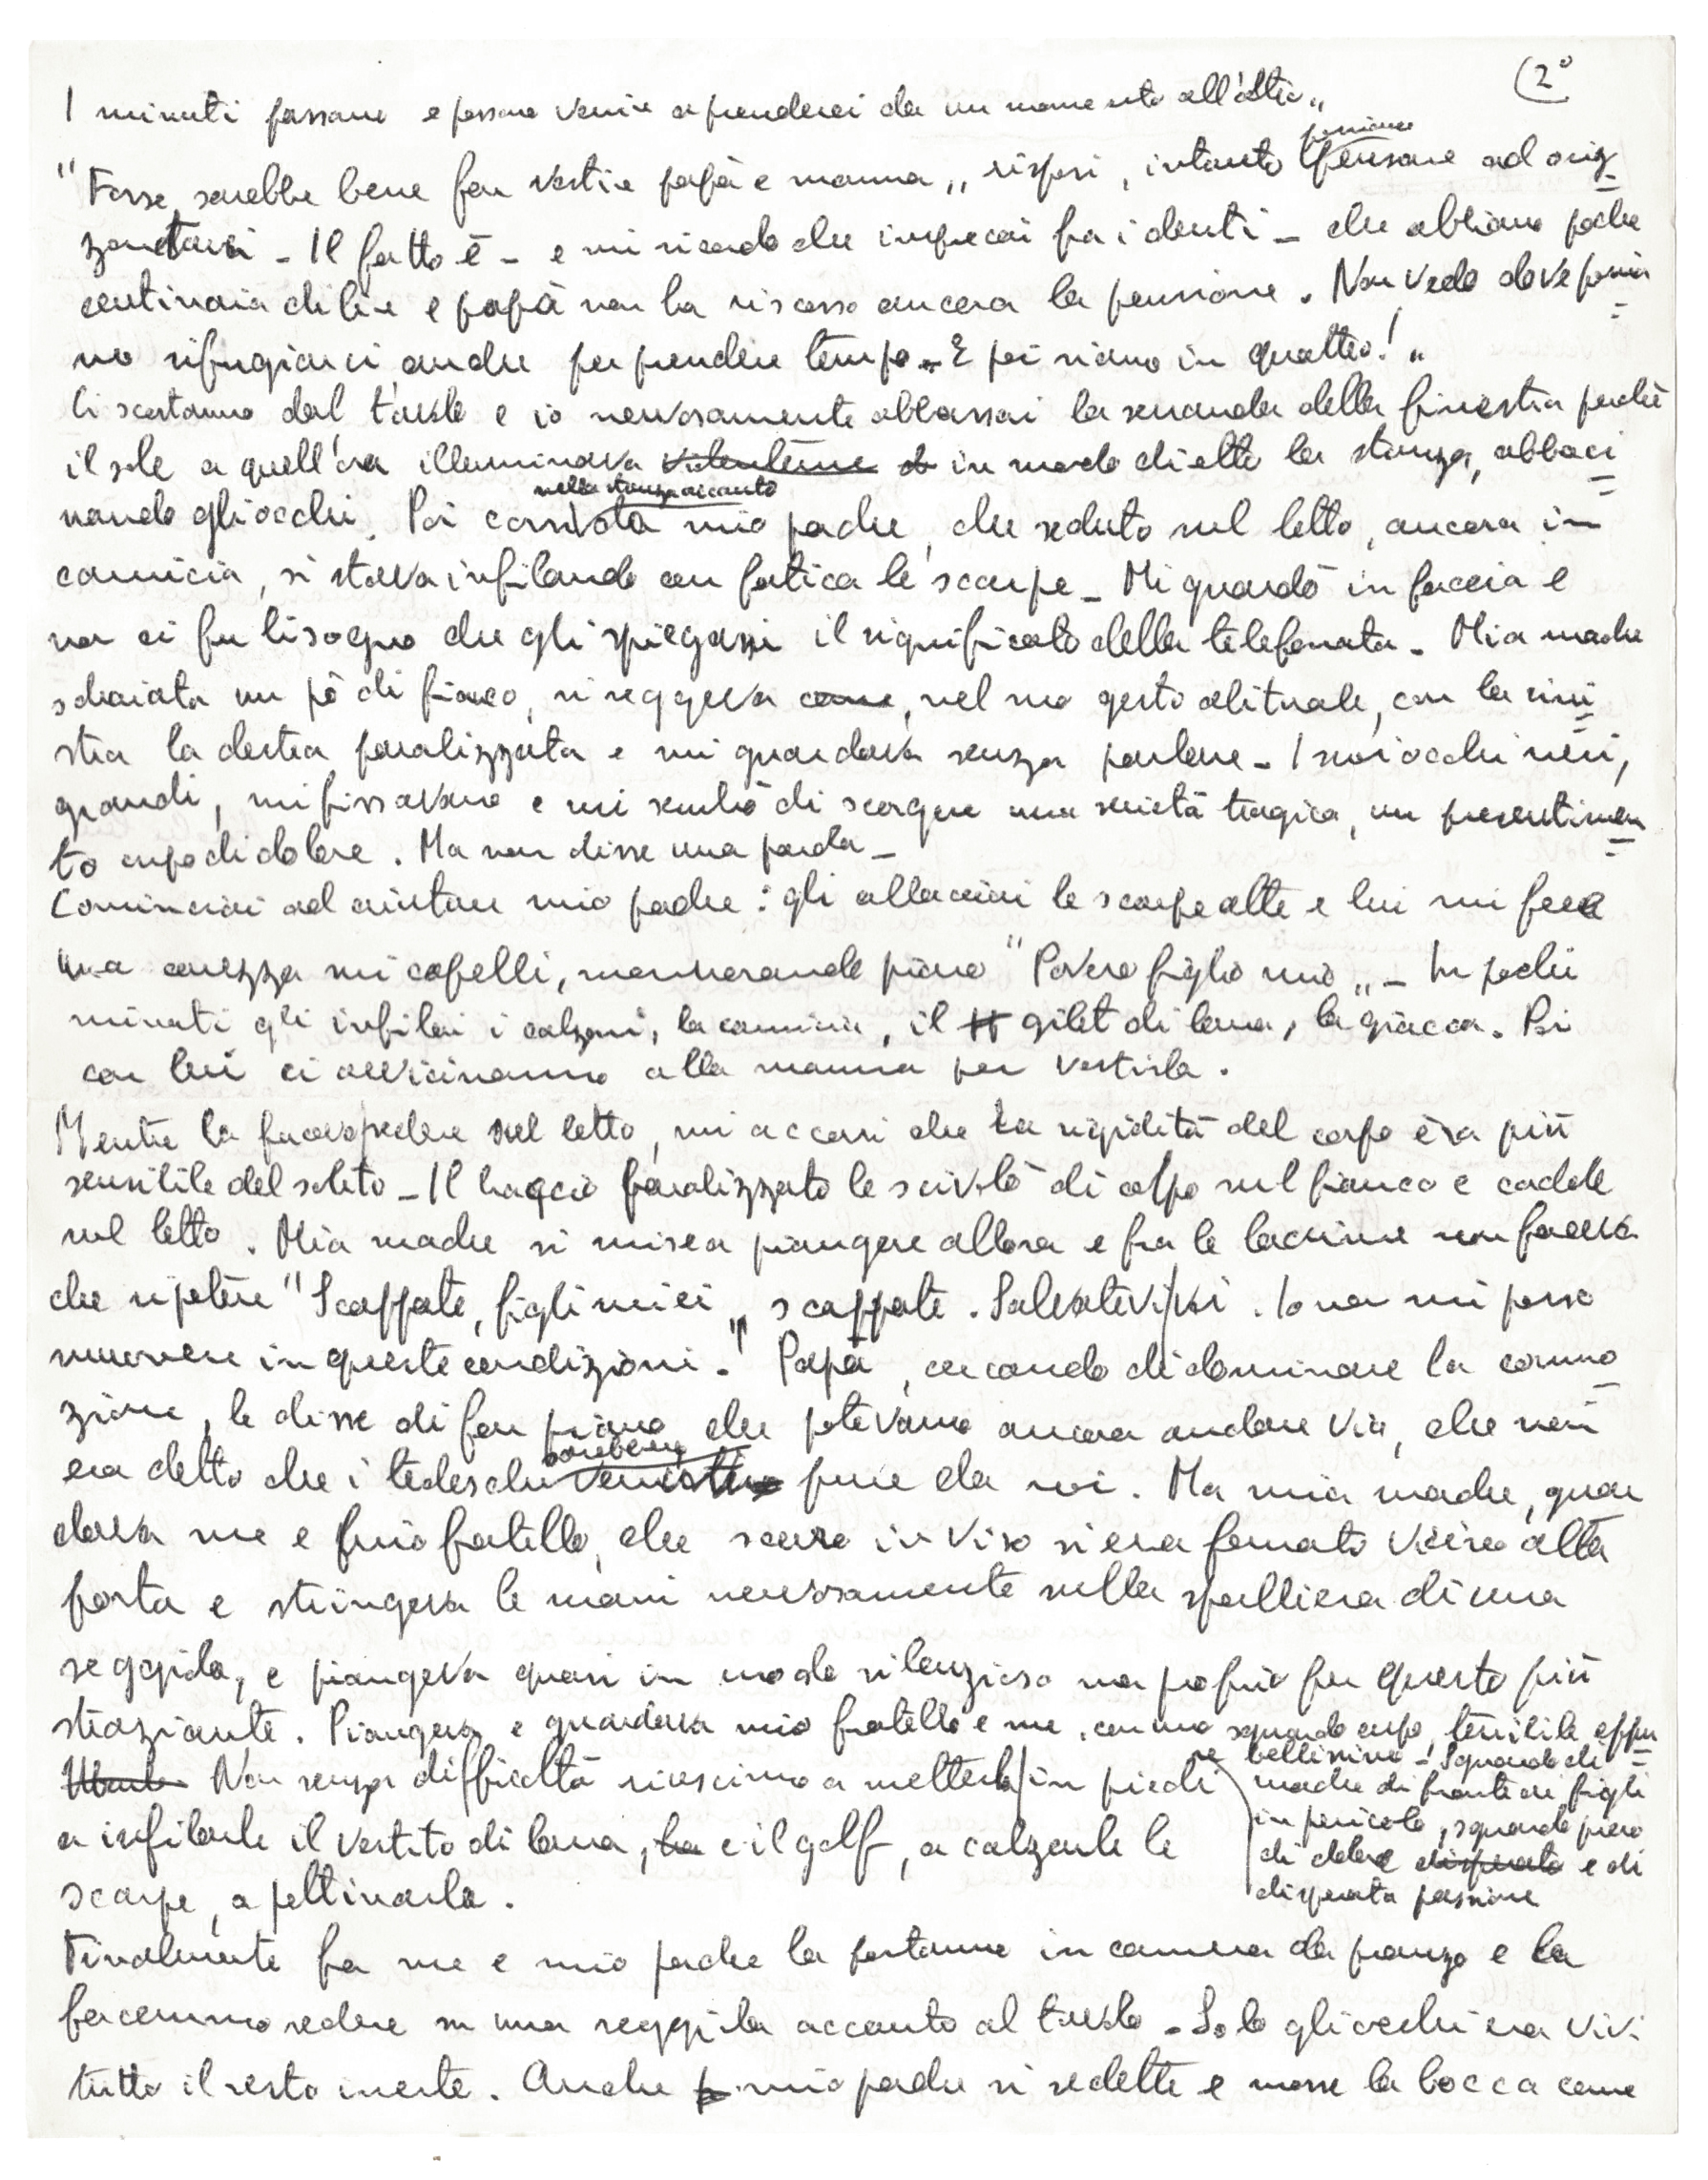 (2°
I minuti passano e possono venire a prenderci da un momento all'altro„
"Forse, sarebbe bene far vestire papà e mamma„ risposi, intanto possiamo pensare ad oriz
zontarci - Il fatto è - e mi ricordo che imprecai fra i denti - che abbiamo poche
centinaia di lire e papà non ha riscosso ancora la pensione. Non vedo dove possia
mo rifugiarci anche per prendere tempo. E poi siamo in quattro!„
Ci scostammo dal tavolo e io nervosamente abbassai la serranda della finestra perchè
il sole a quell'ora illuminava violenteme d in modo diretto la stanza, abbaci
nando gli occhi. Poi corsi nella stanza accanto da mio padre, che seduto sul letto, ancora in
camicia, si stava infilando con fatica le scarpe - Mi guardò in faccia e
non ci fu bisogno che gli spiegassi il significato della telefonata - Mia madre
sdraiata un pò di fianco, si reggeva come, nel suo gesto abituale, con la sini
stra la destra paralizzata e mi guardava senza parlare - I suoi occhi neri,
grandi, mi fissavano e mi sembrò di scorgere una serietà tragica, un presentimen
to cupo di dolore. Ma non disse una parola -
Cominciai ad aiutare mio padre: gli allacciai le scarpe alte e lui mi fece
una carezza sui capelli, mormorando piano "Povero figlio mio„ - In pochi
minuti gli infilai i calzoni, la camicia, il gilet di lana, la giacca. Poi
con lui ci avvicinammo alla mamma per vestirla.
Mentre la facevo sedere sul letto, mi accorsi che la rigidità del corpo era più
sensibile del solito - Il braccio paralizzato le scivolò di colpo sul fianco e cadde
sul letto. Mia madre si mise a piangere allora e fra le lacrime non faceva
che ripetere "Scappate, figli miei„ scappate. Salvatevi voi. Io non mi posso
muovere in queste condizioni." Papà, cercando di dominare la commo
zione, le disse di far piano, che potevamo ancora andare via, che non
era detto che i tedeschi sarebbero venissero pure da noi. Ma mia madre, guar
dava me e mio fratello, che scuro in viso si era fermato vicino alla
porta e stringeva le mani nervosamente sulla spalliera di una
seggiola, e piangeva quasi in modo silenzioso ma proprio per questo più
straziante. Piangeva e guardava mio fratello e me, con uno sguardo cupo, terribile eppu
re bellissimo - Sguardo di
madre di fronte ai figli
in pericolo, sguardo pieno
di dolore disperato e di
disperata passione
Non senza difficoltà riuscimmo a metterla in piedi
a infilarle il vestito di lana, la e il golf, a calzarle le
scarpe, a pettinarla.
Finalmente fra me e mio padre la portammo in camera da pranzo e la
facemmo sedere su una seggiola accanto al tavolo - Solo gli occhi era vivi
tutto il resto inerte. Anche p mio padre si sedette e mosse la bocca come